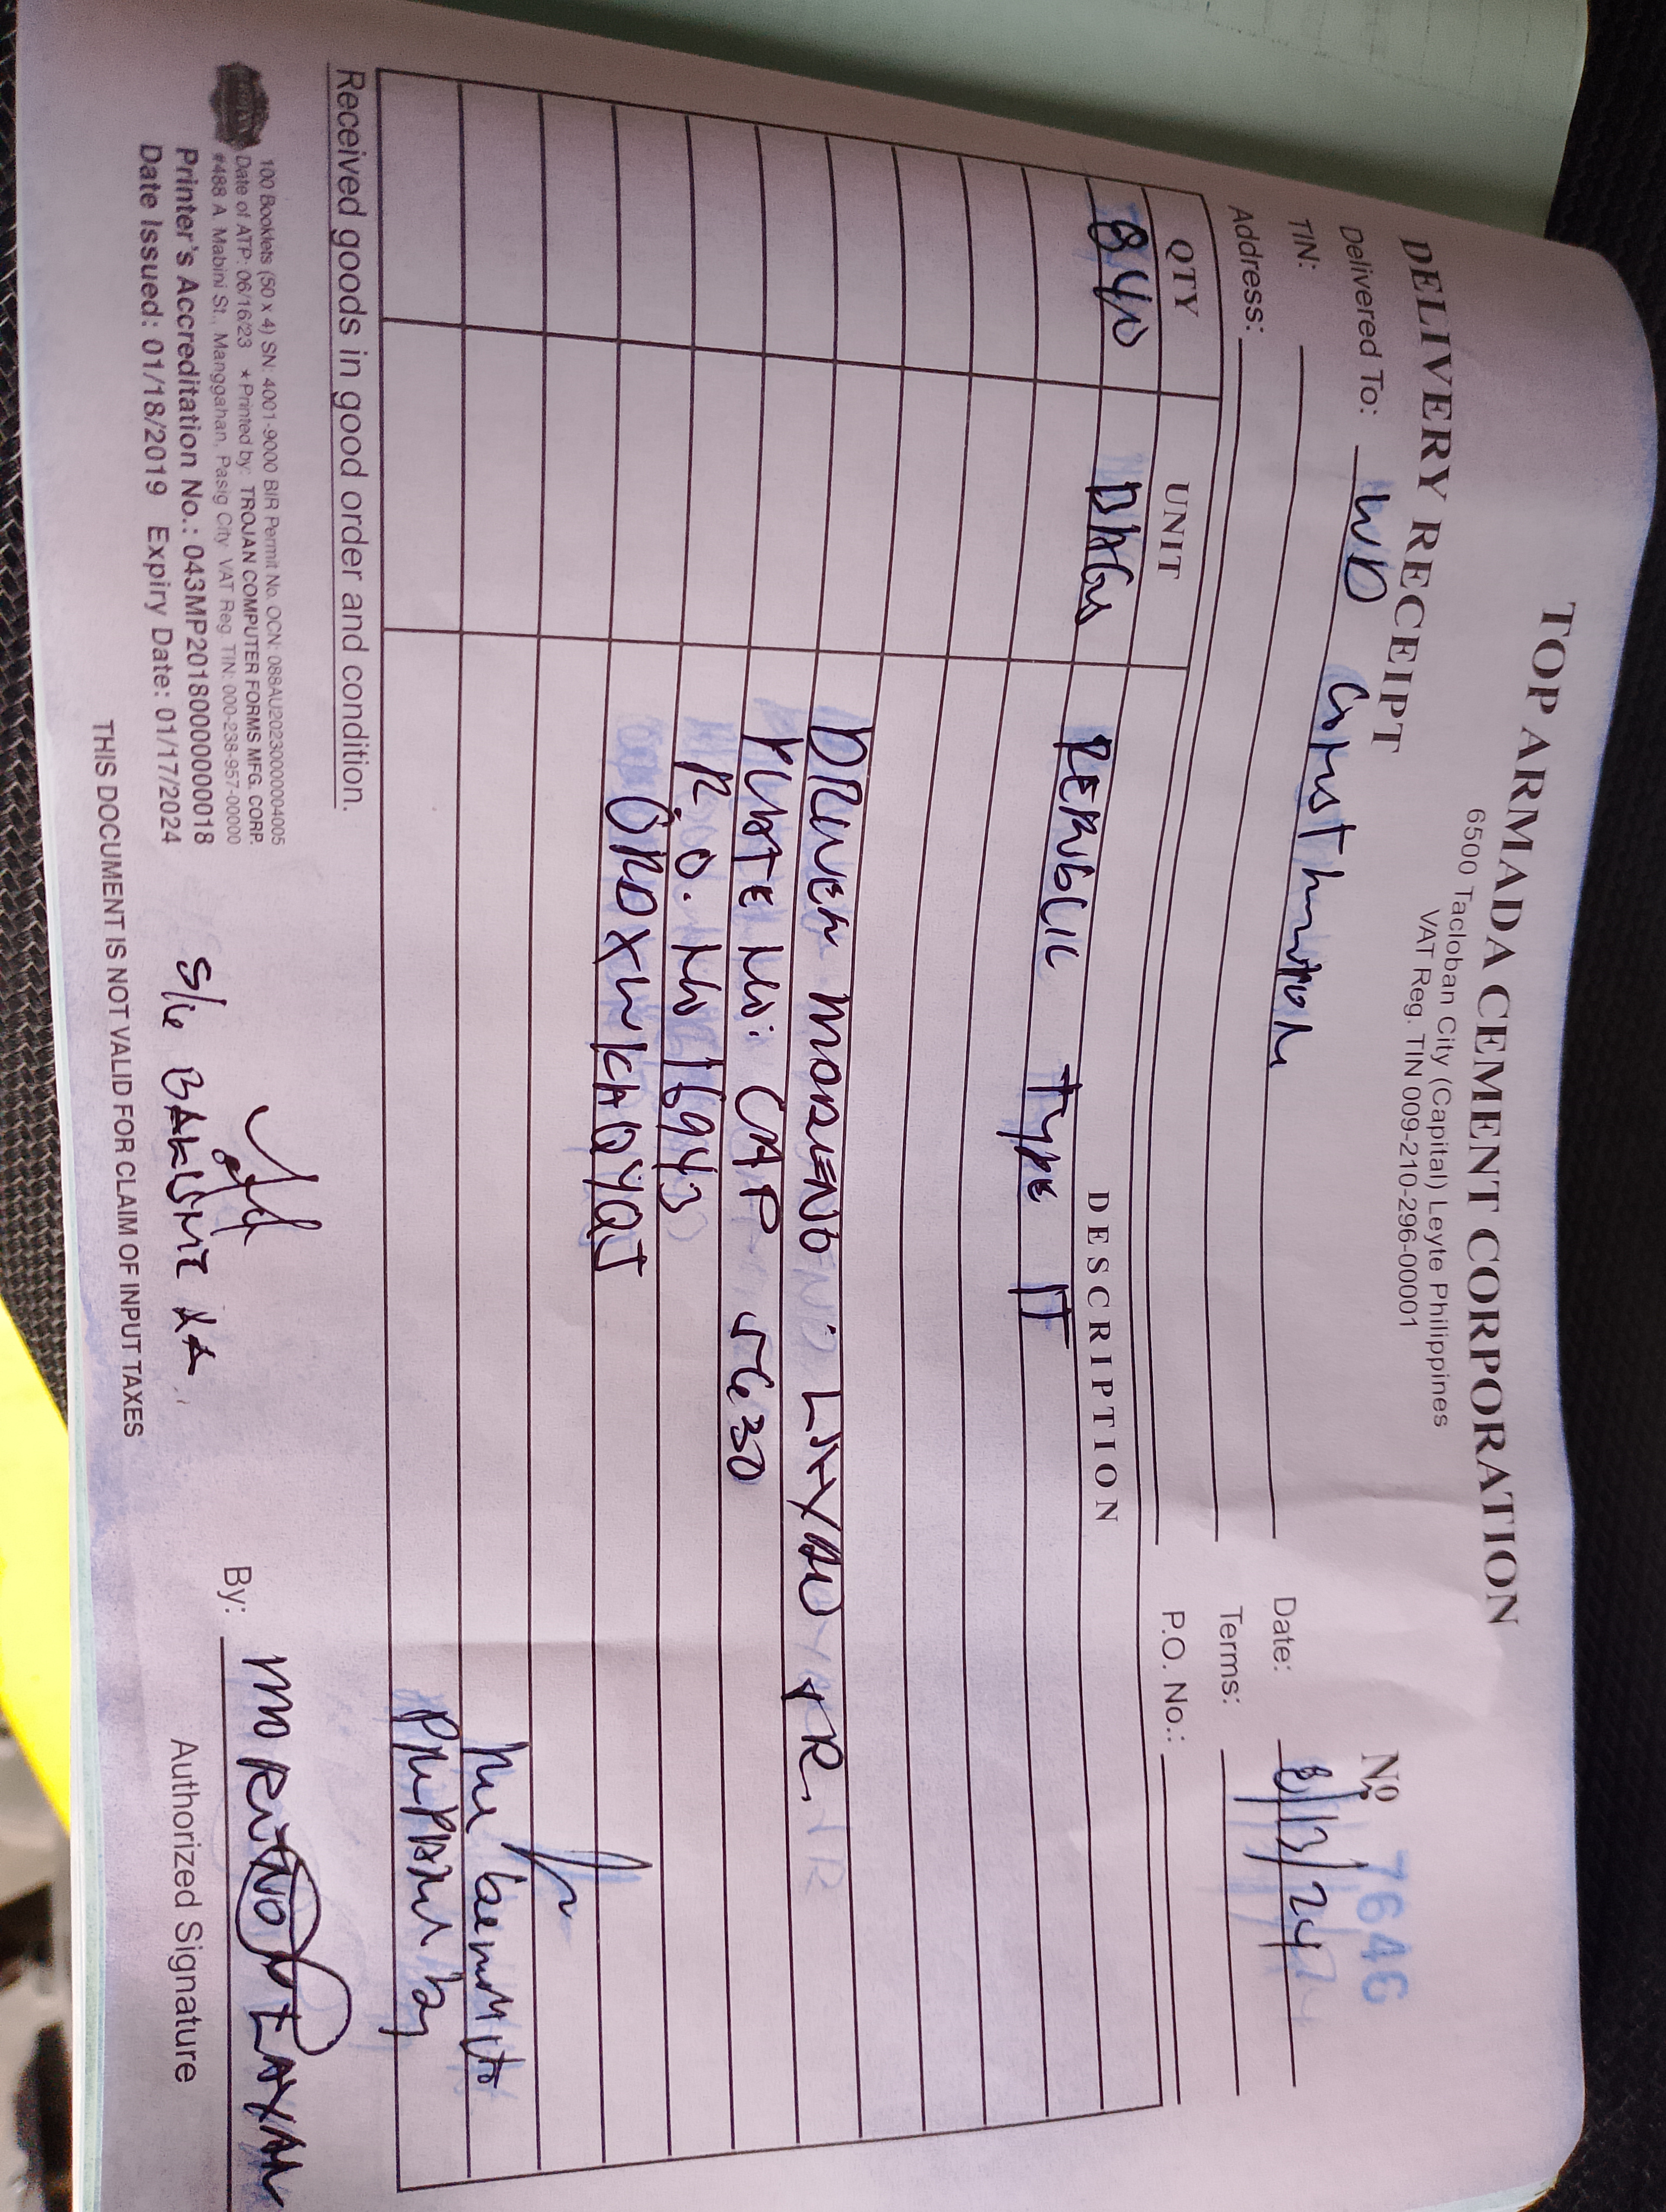 TOP ARMADA CEMENT CORPORATION
6500 Tacloban City (Capital) Leyte Philippines
VAT Reg. TIN 009-210-296-00001
DELIVERY RECEIPT
Nº 7646
Delivered To: WD Construction
Date: 8/13/24
TIN:
Terms:
Address:
P.O. No.:
QTY UNIT DESCRIPTION
840 BAGS REPUBLIC TYPE IT
DRIVER MODSENO LAYAO JR.
PLATE No: CAP 5630
P.O. No 16943
Prepared by
Received goods in good order and condition.
100 Booklets (50 x 4) SN: 4001-9000 BIR Permit No. OCN: 088AU20230000004005
Date of ATP: 06/16/23 * Printed by: TROJAN COMPUTER FORMS MFG. CORP.
#488 A. Mabini St., Manggahan, Pasig City VAT Reg. TIN: 000-238-957-00000
Printer's Accreditation No.: 043MP20180000000018
Date Issued: 01/18/2019 Expiry Date: 01/17/2024
By:
Authorized Signature
THIS DOCUMENT IS NOT VALID FOR CLAIM OF INPUT TAXES